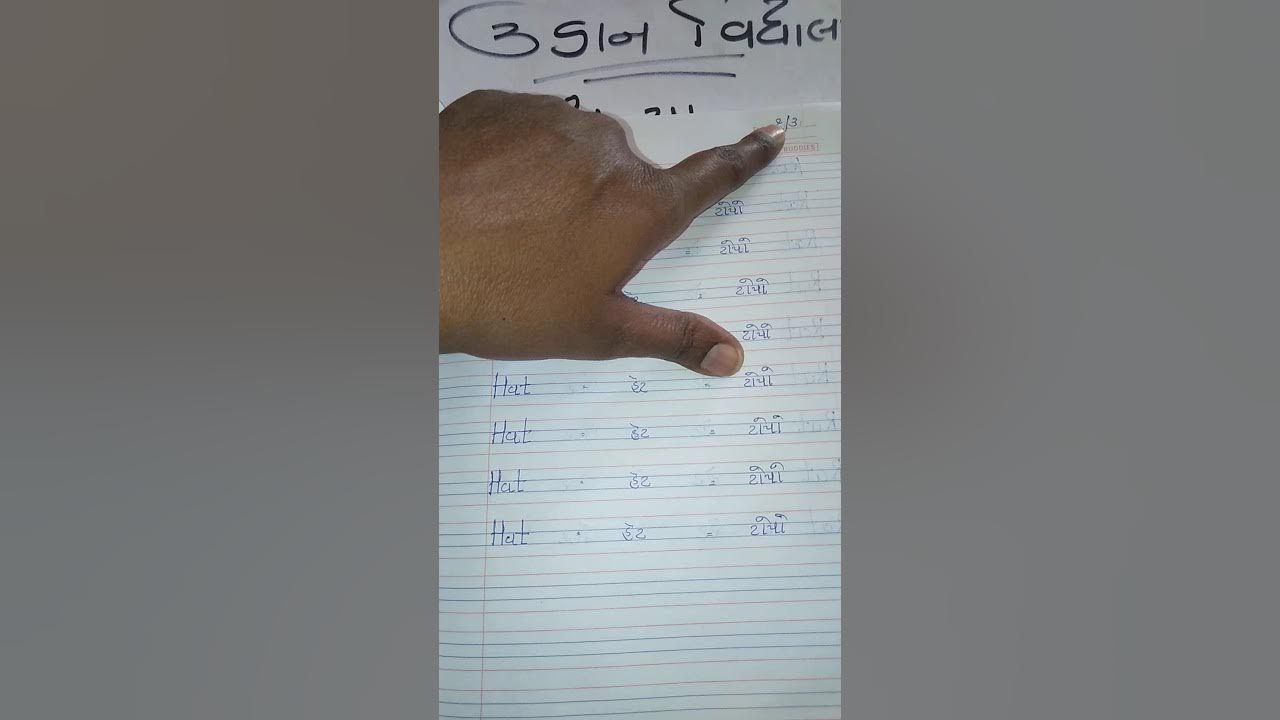 ઉડાન વિદ્યાલ
2/3
BUDDIES
ટોપો
= ટોપો
: ટોપો
ટોપો
Hat - હેટ = ટોપો
Hat - હેટ = ટોપો
Hat - હેટ = ટોપો
Hat - હેટ = ટોપો